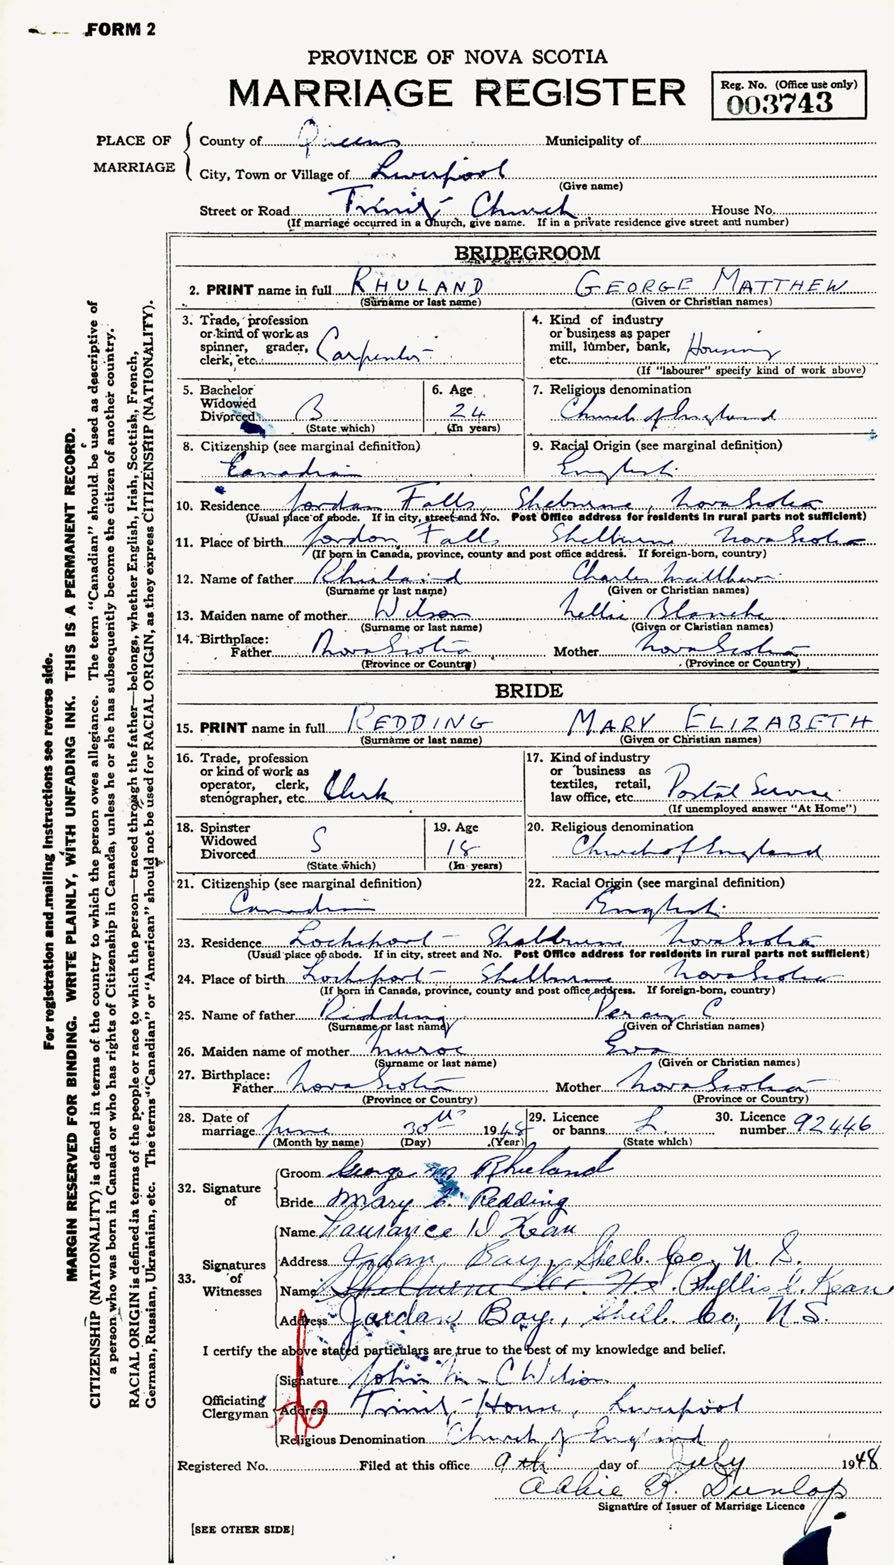 FORM 2
PROVINCE OF NOVA SCOTIA
MARRIAGE REGISTER
Reg. No. (Office use only)
003743
PLACE OF MARRIAGE
County of Queens Municipality of
City, Town or Village of Liverpool
(Give name)
Street or Road Trinity Church House No.
(If marriage occurred in a Church, give name. If in a private residence give street and number)
BRIDEGROOM
2. PRINT name in full RHULAND GEORGE MATTHEW
(Surname or last name) (Given or Christian names)
3. Trade, profession or kind of work as spinner, grader, clerk, etc. Carpenter
4. Kind of industry or business as paper mill, lumber, bank, etc. Housing
(If "labourer" specify kind of work above)
5. Bachelor Widowed Divorced B
(State which)
6. Age 24
(In years)
7. Religious denomination
Church of England
8. Citizenship (see marginal definition)
Canadian
9. Racial Origin (see marginal definition)
English
10. Residence Jordan Falls Shelburne Nova Scotia
(Usual place of abode. If in city, street and No. Post Office address for residents in rural parts not sufficient)
11. Place of birth Jordon Falls Shelburne Nova Scotia
(If born in Canada, province, county and post office address. If foreign-born, country)
12. Name of father Rhuland Charles Matthew
(Surname or last name) (Given or Christian names)
13. Maiden name of mother Wilson Nellie Blanche
(Surname or last name) (Given or Christian names)
14. Birthplace:
Father Nova Scotia Mother Nova Scotia
(Province or Country) (Province or Country)
BRIDE
15. PRINT name in full REDDING MARY ELIZABETH
(Surname or last name) (Given or Christian names)
16. Trade, profession or kind of work as operator, clerk, stenographer, etc. Clerk
17. Kind of industry or business as textiles, retail, law office, etc. Postal Service
(If unemployed answer "At Home")
18. Spinster Widowed Divorced S
(State which)
19. Age 18
(In years)
20. Religious denomination
Church of England
21. Citizenship (see marginal definition)
Canadian
22. Racial Origin (see marginal definition)
English
23. Residence Lockeport Shelburne Nova Scotia
(Usual place of abode. If in city, street and No. Post Office address for residents in rural parts not sufficient)
24. Place of birth Lockeport Shelburne Nova Scotia
(If born in Canada, province, county and post office address. If foreign-born, country)
25. Name of father Redding Percy C
(Surname or last name) (Given or Christian names)
26. Maiden name of mother Eva
(Surname or last name) (Given or Christian names)
27. Birthplace:
Father Nova Scotia Mother Nova Scotia
(Province or Country) (Province or Country)
28. Date of marriage June 30th 1948
(Month by name) (Day) (Year)
29. Licence or banns L
(State which)
30. Licence number 92446
32. Signature of
Groom George M Rhuland
Bride Mary E. Redding
33. Signatures of Witnesses
Name Laurance D Kean
Address Jordan Bay, Shelb. Co, N S.
Name Phyllis L. Kean
Address Jordan Bay, Shelb. Co, N.S.
I certify the above stated particulars are true to the best of my knowledge and belief.
Officiating Clergyman
Signature John M. C Wilson
Address Trinity House, Liverpool
Religious Denomination Church of England
Registered No. Filed at this office 9th day of July 1948
Addie R. Dunlop
Signature of Issuer of Marriage Licence
[SEE OTHER SIDE]
For registration and mailing instructions see reverse side.
MARGIN RESERVED FOR BINDING. WRITE PLAINLY, WITH UNFADING INK. THIS IS A PERMANENT RECORD.
CITIZENSHIP (NATIONALITY) is defined in terms of the country to which the person owes allegiance. The term "Canadian" should be used as descriptive of
a person who was born in Canada or who has rights of Citizenship in Canada, unless he or she has subsequently become the citizen of another country.
RACIAL ORIGIN is defined in terms of the people or race to which the person—traced through the father—belongs, whether English, Irish, Scottish, French,
German, Russian, Ukrainian, etc. The terms "Canadian" or "American" should not be used for RACIAL ORIGIN, as they express CITIZENSHIP (NATIONALITY).